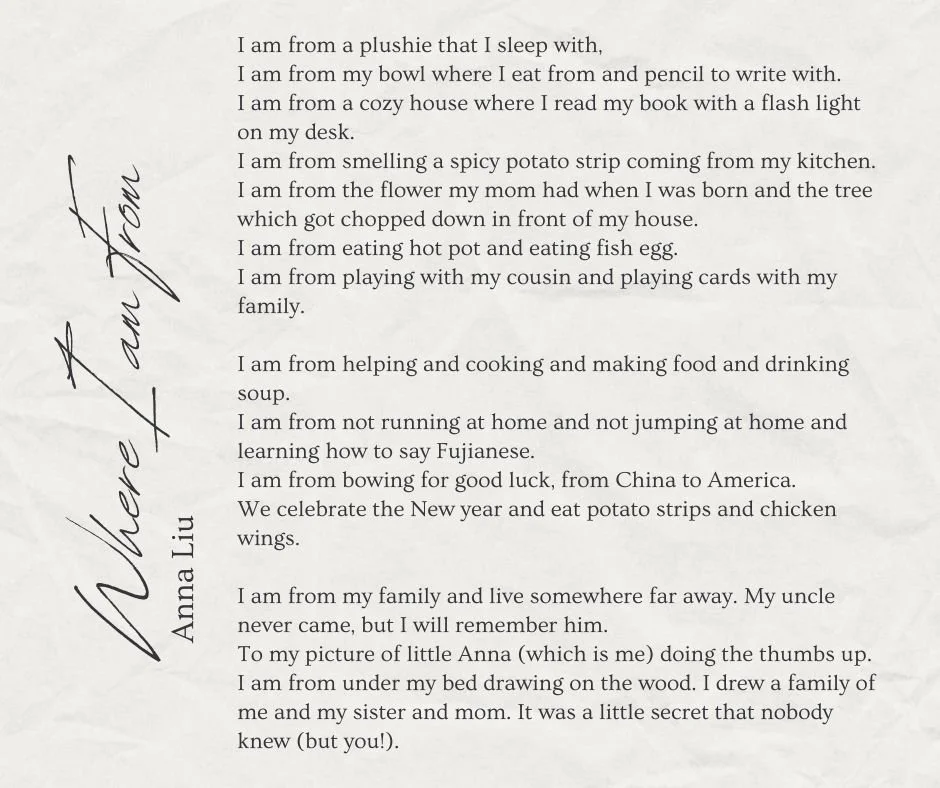 Where I am from
Anna Liu
I am from a plushie that I sleep with,
I am from my bowl where I eat from and pencil to write with.
I am from a cozy house where I read my book with a flash light
on my desk.
I am from smelling a spicy potato strip coming from my kitchen.
I am from the flower my mom had when I was born and the tree
which got chopped down in front of my house.
I am from eating hot pot and eating fish egg.
I am from playing with my cousin and playing cards with my
family.

I am from helping and cooking and making food and drinking
soup.
I am from not running at home and not jumping at home and
learning how to say Fujianese.
I am from bowing for good luck, from China to America.
We celebrate the New year and eat potato strips and chicken
wings.

I am from my family and live somewhere far away. My uncle
never came, but I will remember him.
To my picture of little Anna (which is me) doing the thumbs up.
I am from under my bed drawing on the wood. I drew a family of
me and my sister and mom. It was a little secret that nobody
knew (but you!).